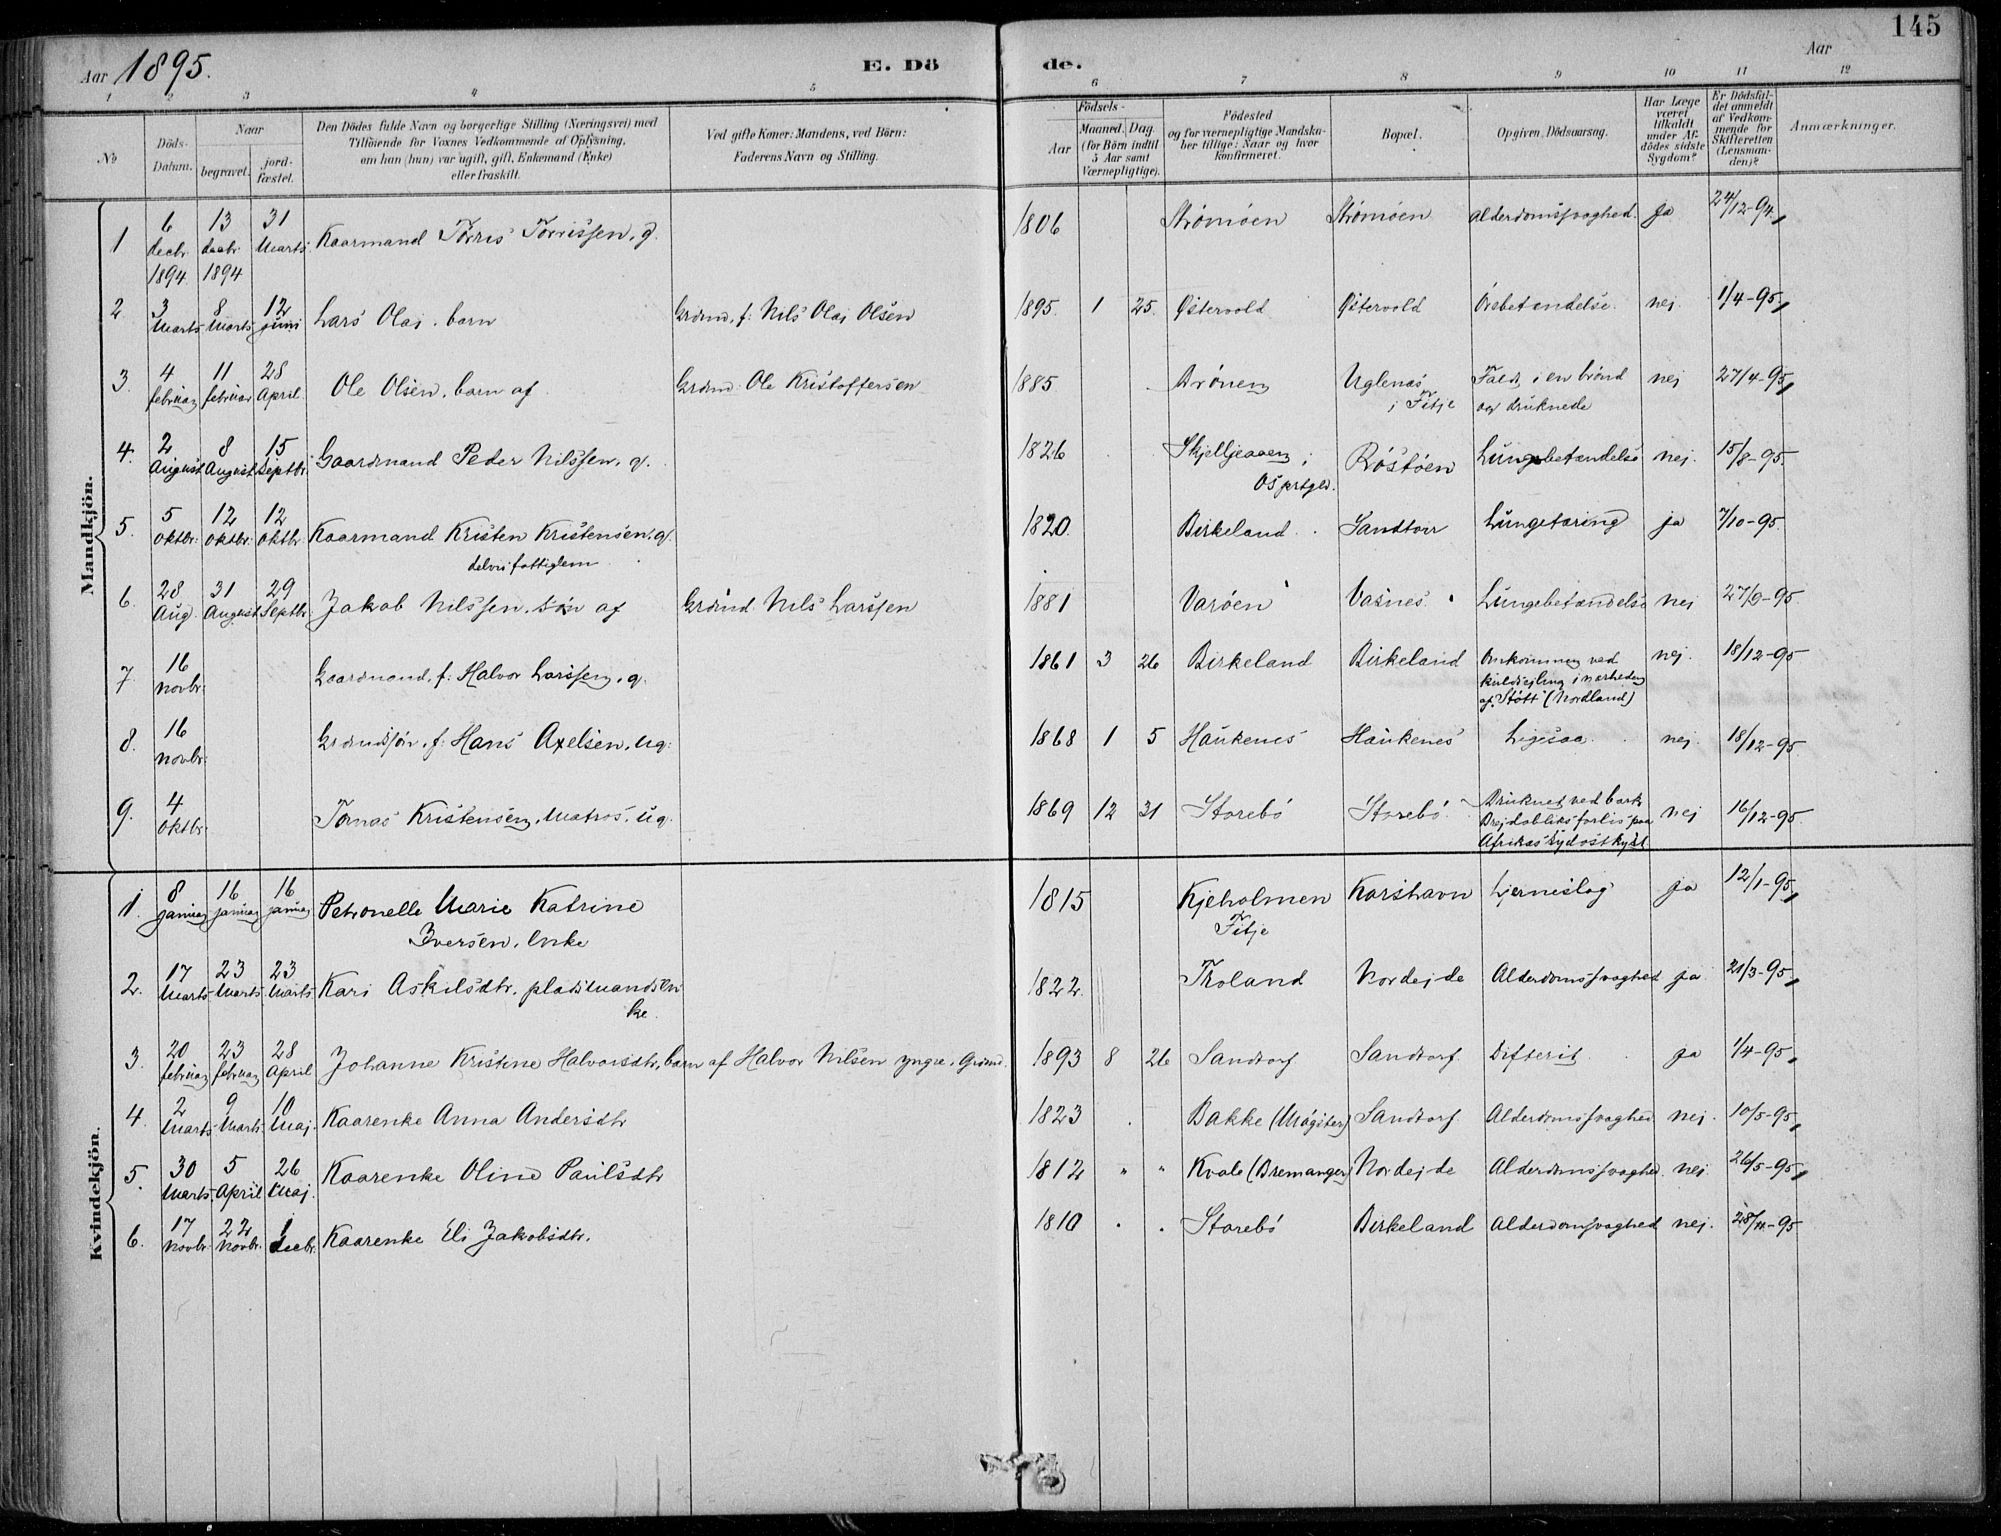 145
Aar 1895.
E. Dö de.
Aar
1 2 3 4 5 6 7 8 9 10 11 12
No
Döds-Datum.
Naar
begravet.
jord-fæstet.
Den Dödes fulde Navn og borgerlige Stilling (Næringsvei) med
Tilförende for Voxnes Vedkommende af Oplysning,
om han (hun) var ugift, gift, Enkemand (Enke)
eller fraskilt.
Ved gifte Koner: Mandens, ved Börn:
Faderens Navn og Stilling.
Födsels-
Aar
Maaned. Dag
(for Börn indtil
5 Aar samt
Værnepligtige).
Födested
og for værnepligtige Mandska-
ber tillige: Naar og hvor
konfirmeret.
Bopæl.
Opgiven Dödsaarsag.
Har Læge
været
tilkaldt
under Af-
dödes sidste
Sygdom?
Er Dödsfal-
det anmeldt
af Vedkom-
mende for
Skifteretten
(Lensman-
den)?
Anmærkninger.
Mandkjön.
1 6 decbr 1894 13 decbr 1894 31 Marts Kaarmand Törris Törrissen, g. 1806 Strömöen Strömöen Alderdomssvaghed. Ja 24/12-94
2 3 Marts 8 Marts 12 Juni Lars Olai, barn Grdmd. f: Nils Olai Olsen 1895. 1 25. Östervold Östervold Örebetændelse. nej 1/4-95
3. 4 februar 11 februar 28 April Ole Olsen, barn af Grdmd. Ole Kristoffersen 1885 Drönen Uglenes
i Fitje
Faldt i en brönd
og druknede
nej 27/4-95
4. 2 August 8 August 15 Septbr. Gaardmand Peder Nilssen, g. 1826 i
Os prstgld.
Röstöen Lungebetændelse nej. 15/8-95.
5. 5 Oktbr: 12 Oktbr: 12 Oktbr. Kaarmand Kristen Kristensen, g.
delvis fattiglem
1820. Birkeland Sandtorv Lungetæring ja 7/10-95.
6. 28 Aug. 31 August 29 Septbr. Jakob Nilssen, sön af Grdmd. Nils Larssen 1881 Varöen Vasnes. Lungebetændelse nej 27/9-95.
7. 16 Novbr: Gaardmand, f: Halvor Larssen, g. 1861 3 26 Birkeland Birkeland Omkommen ved
kuldsejling i nærheden
af Stött (Nordland)
nej. 18/12-95
8. 16 Novbr: Grdmdssön, f: Hans Axelsen, ug: 1868 1 5 Haukenes Haukenes Ligesaa. nej. 18/12-95
9. 4 Oktbr: Tomas Kristensen, Matros, ug. 1869 12 31 Storebö Storebö Druknet ved bark
Brejdabliks forlis paa
Afrikas Sydostkyst
nej 16/12-95
Kvindekjön.
1. 8 januar 16 januar 16 januar Petronelle Marie Katrine
Iversen, Enke
1815 Kjeholmen
Fitje
Korshavn Hjerneslag ja 12/1-95
2. 17 Marts 23 Marts 23 Marts Kari Askilsdtr. pladsmandsen
ke.
1822. Troland Nordejde Alderdomssvaghed ja 21/3-95
3. 20 februar 23 februar 28 April Johanne Kristine Halvorsdtr, barn af Halvor Nilsen yngre, Grdmd. 1893 8 26 Sandtorf Sandtorf. Difterit ja 1/4-95
4. 2 Marts 9 Marts. 10 Maj. Kaarenke Anna Andersdtr 1823 Bakke (Mögster) Sandtorf. Alderdomssvaghed. nej. 10/5-95
5. 30 Marts. 5 April 26 Maj. Kaarenke Oline Paulsdtr 1812 " " Kvale (Bremanger) Nordejde Alderdomssvaghed. nej. 26/5-95
6. 17 Novbr. 22 Novbr. 1 decbr. Kaarenke Eli Jakobsdtr. 1810 Storebö Birkeland Alderdomssvaghed nej. 28/11-95